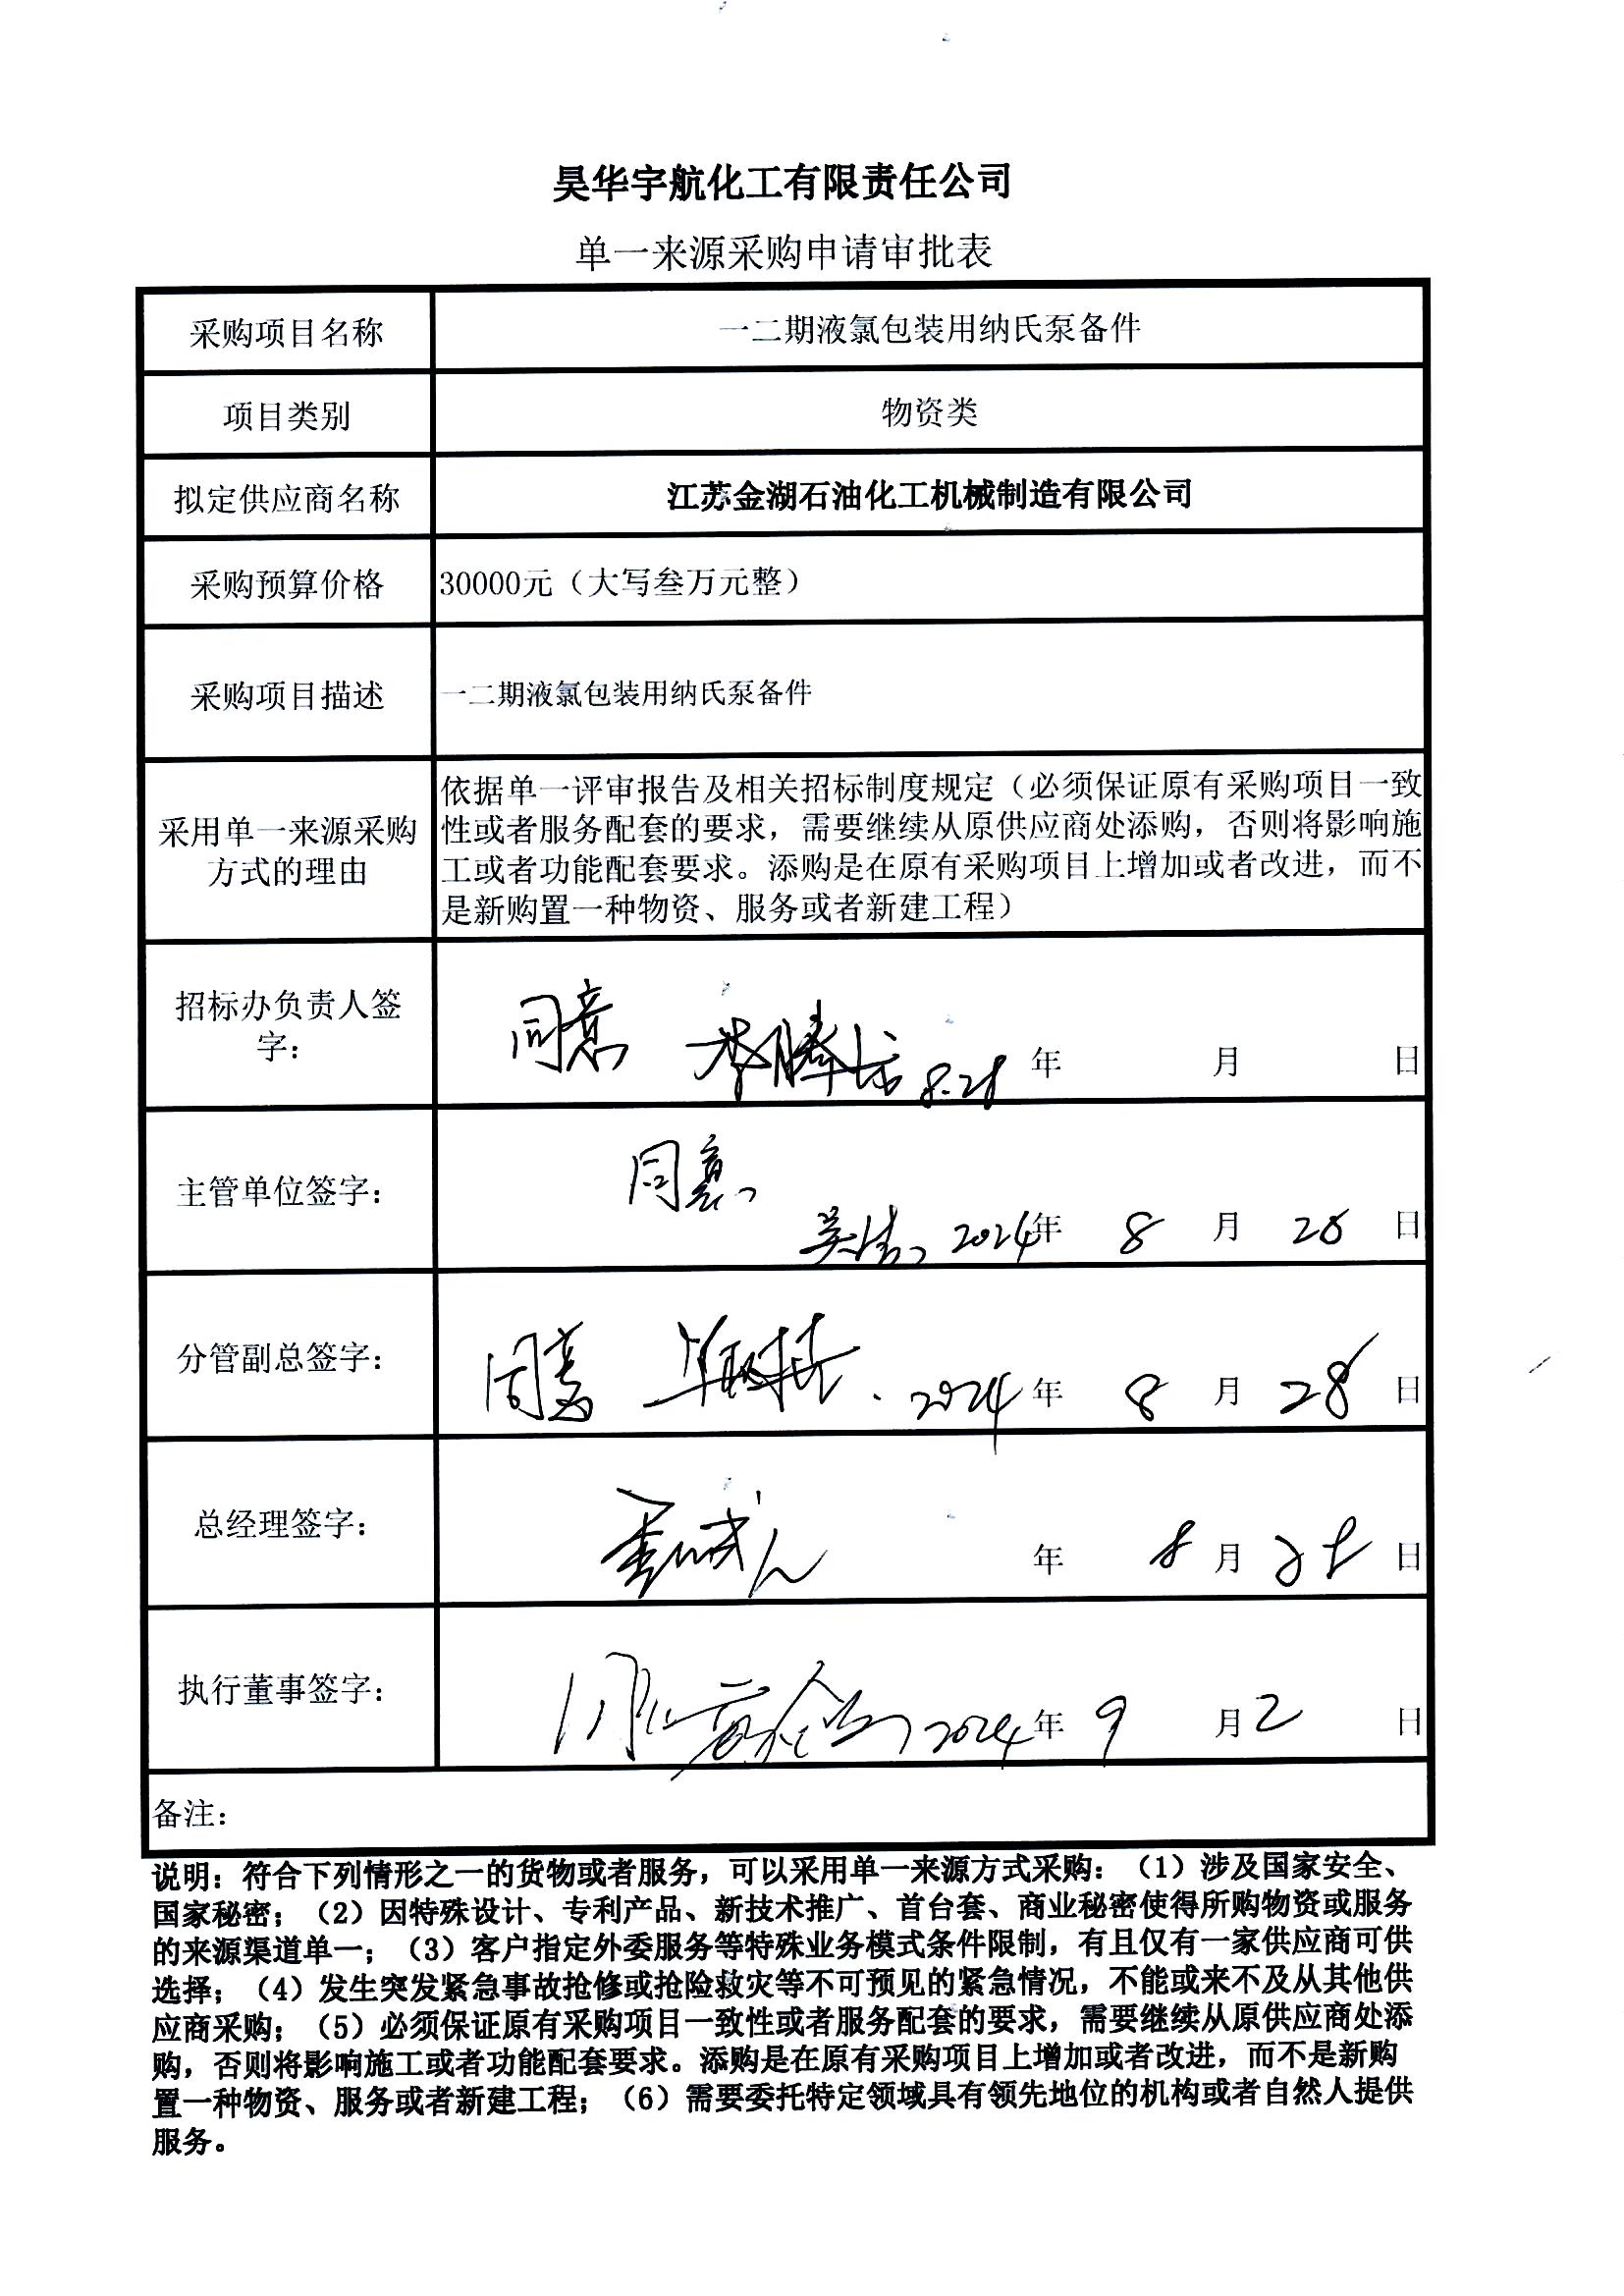 昊华宇航化工有限责任公司
单一来源采购申请审批表
采购项目名称
一二期液氯包装用纳氏泵备件
项目类别
物资类
拟定供应商名称
江苏金湖石油化工机械制造有限公司
采购预算价格
30000元（大写叁万元整）
采购项目描述
一二期液氯包装用纳氏泵备件
采用单一来源采购
方式的理由
依据单一评审报告及相关招标制度规定（必须保证原有采购项目一致
性或者服务配套的要求，需要继续从原供应商处添购，否则将影响施
工或者功能配套要求。添购是在原有采购项目上增加或者改进，而不
是新购置一种物资、服务或者新建工程）
招标办负责人签
字：
同意 8.28 年 月 日
主管单位签字：
同意
2024年 8 月 28 日
分管副总签字：
同意 2024 年 8 月 28 日
总经理签字：
年 8 月 28 日
执行董事签字：
同意 2024年 9 月 2 日
备注：
说明：符合下列情形之一的货物或者服务，可以采用单一来源方式采购：（1）涉及国家安全、
国家秘密；（2）因特殊设计、专利产品、新技术推广、首台套、商业秘密使得所购物资或服务
的来源渠道单一；（3）客户指定外委服务等特殊业务模式条件限制，有且仅有一家供应商可供
选择；（4）发生突发紧急事故抢修或抢险救灾等不可预见的紧急情况，不能或来不及从其他供
应商采购；（5）必须保证原有采购项目一致性或者服务配套的要求，需要继续从原供应商处添
购，否则将影响施工或者功能配套要求。添购是在原有采购项目上增加或者改进，而不是新购
置一种物资、服务或者新建工程；（6）需要委托特定领域具有领先地位的机构或者自然人提供
服务。